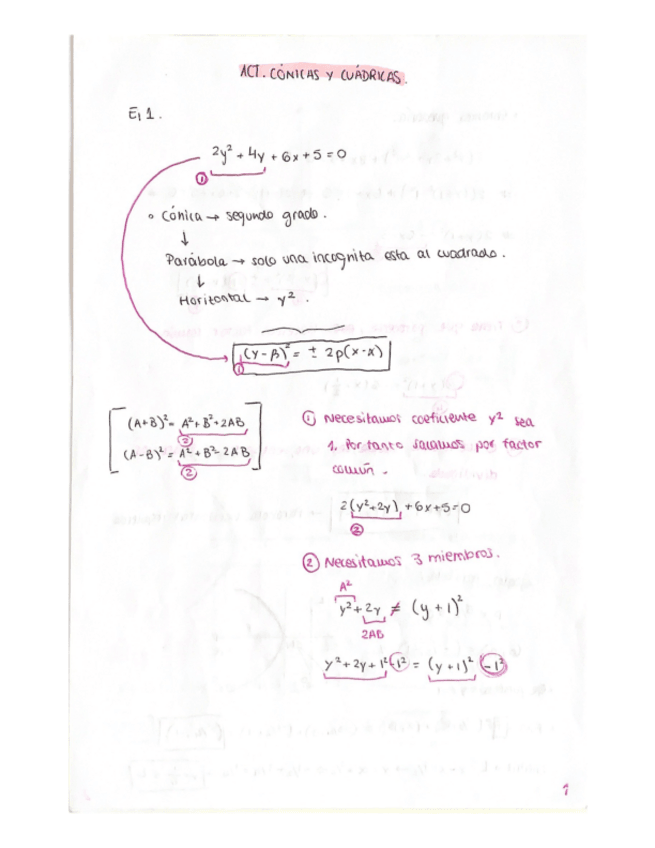 ACT. CÓNICAS Y CUÁDRICAS.
Ej 1.
2y² + 4y + 6x + 5 = 0
①
• Cónica → segundo grado.
↓
Parábola → solo una incognita esta al cuadrado.
↓
Horizontal → y².
(y - β)² = ± 2p(x - α)
①
(A+B)² = A² + B² + 2AB
②
(A-B)² = A² + B² - 2AB
②
① Necesitamos coeficiente y² sea
1. Por tanto sacamos por factor
común.
2(y² + 2y) + 6x + 5 = 0
②
② Necesitamos 3 miembros.
A²
y² + 2y ≠ (y + 1)²
2AB
y² + 2y + 1² - 1² = (y + 1)² - 1²
1